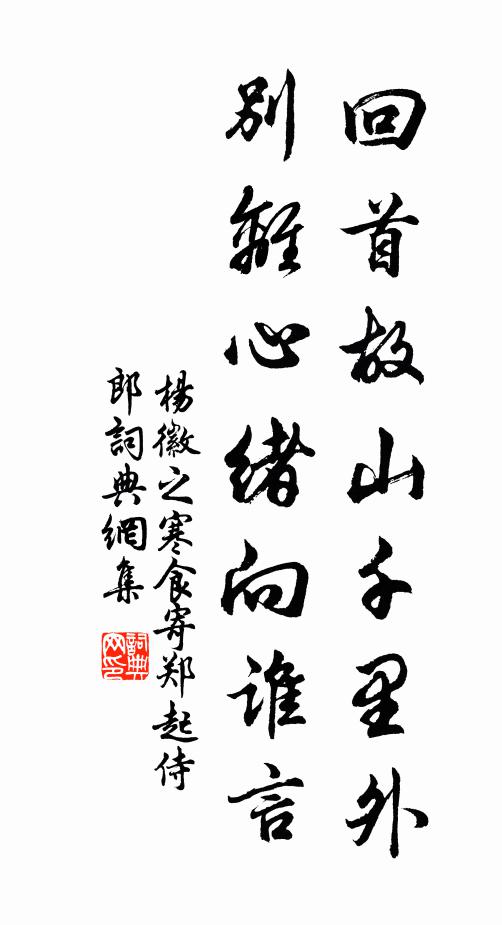 回首故山千里外
別離心緒向誰言
楊徽之寒食寄郑起侍
郎詞典網集
詞典网印